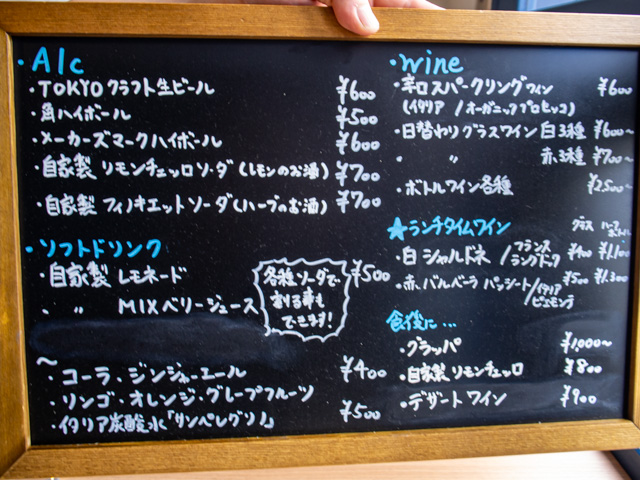 ・Alc
・TOKYOクラフト生ビール ¥600
・角ハイボール ¥500
・メーカーズマークハイボール ¥600
・自家製 リモンチェッロソーダ(レモンのお酒) ¥700
・自家製 フィノキエットソーダ(ハーブのお酒) ¥700
・ソフトドリンク
・自家製 レモネード ¥500
・ 〃 MIXベリージュース
各種ソーダで
割る事も
できます!
〜
・コーラ・ジンジャーエール ¥400
・リンゴ・オレンジ・グレープフルーツ
・イタリア炭酸水「サンペレグリノ」 ¥500
・wine
・辛口スパークリングワイン ¥600
(イタリア / オーガニックプロセッコ)
・日替わりグラスワイン 白3種 ¥600~
・ 〃 赤3種 ¥700~
・ボトルワイン各種 ¥2500~
★ランチタイムワイン グラス ハーフボトル
・白 シャルドネ / フランス ラングドック ¥400 ¥1,100
・赤 バルベーラ パッシート / イタリア ピエモンテ ¥500 ¥1,300
食後に…
・グラッパ ¥1,000~
・自家製 リモンチェッロ ¥800
・デザートワイン ¥900